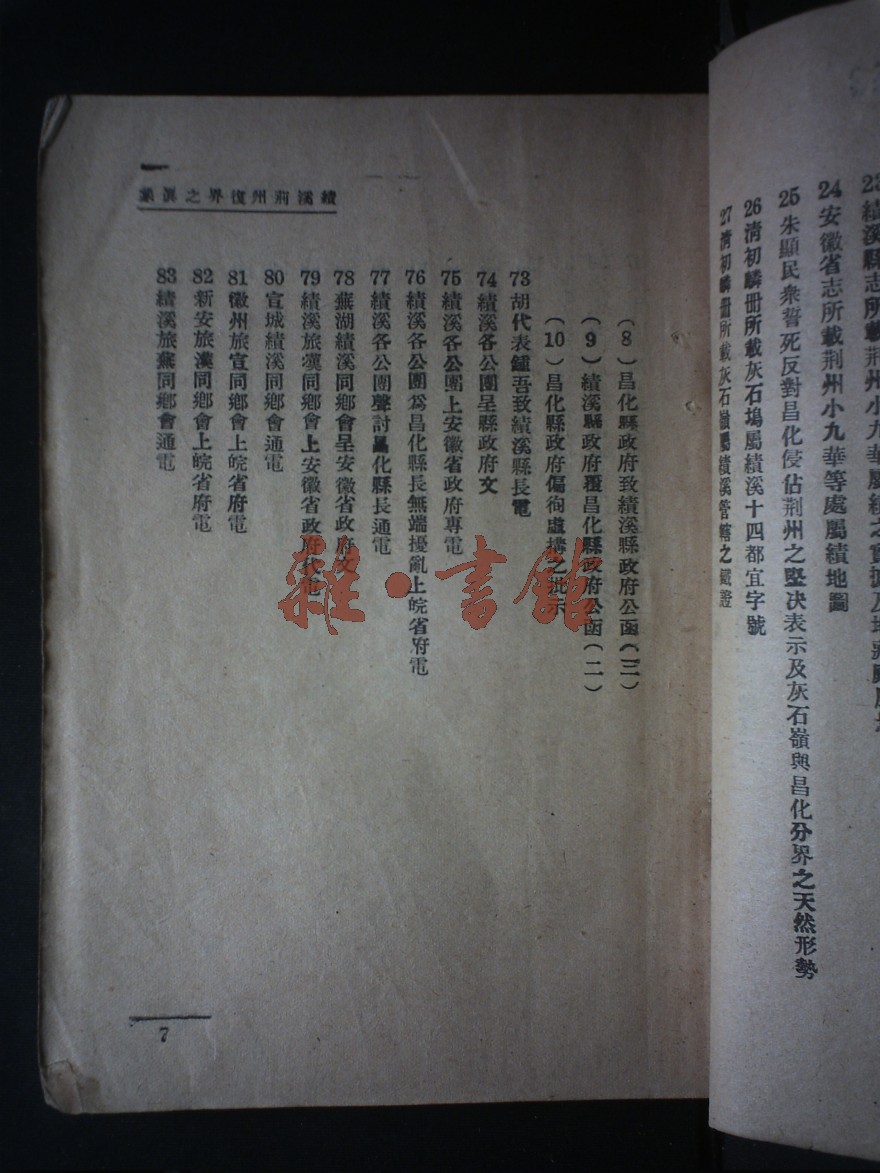 23績溪縣志所載荆州小九華屬績之實據及
24安徽省志所載荆州小九華等處屬績地圖
25朱顯民衆誓死反對昌化侵佔荆州之堅决表示及灰石嶺與昌化分界之天然形勢
26清初鱗冊所載灰石塢屬績溪十四都宜字號
27清初鱗冊所載灰石嶺屬績溪管轄之鐵證
績溪荊州復界之眞象
(8)昌化縣政府致績溪縣政府公函(三)
(9)績溪縣政府覆昌化縣政府公函(二)
(10)昌化縣政府偏徇虛搆之批示
73胡代表鍾吾致績溪縣長電
74績溪各公團呈縣政府文
75績溪各公團上安徽省政府專電
76績溪各公團爲昌化縣長無端擾亂上皖省府電
77績溪各公團聲討昌化縣長通電
78蕪湖績溪同鄉會呈安徽省政府文
79績溪旅漢同鄉會上安徽省政府代電
80宣城績溪同鄉會通電
81徽州旅宣同鄉會上皖省府電
82新安旅漢同鄉會上皖省府電
83績溪旅蕪同鄉會通電
7
雜·書館